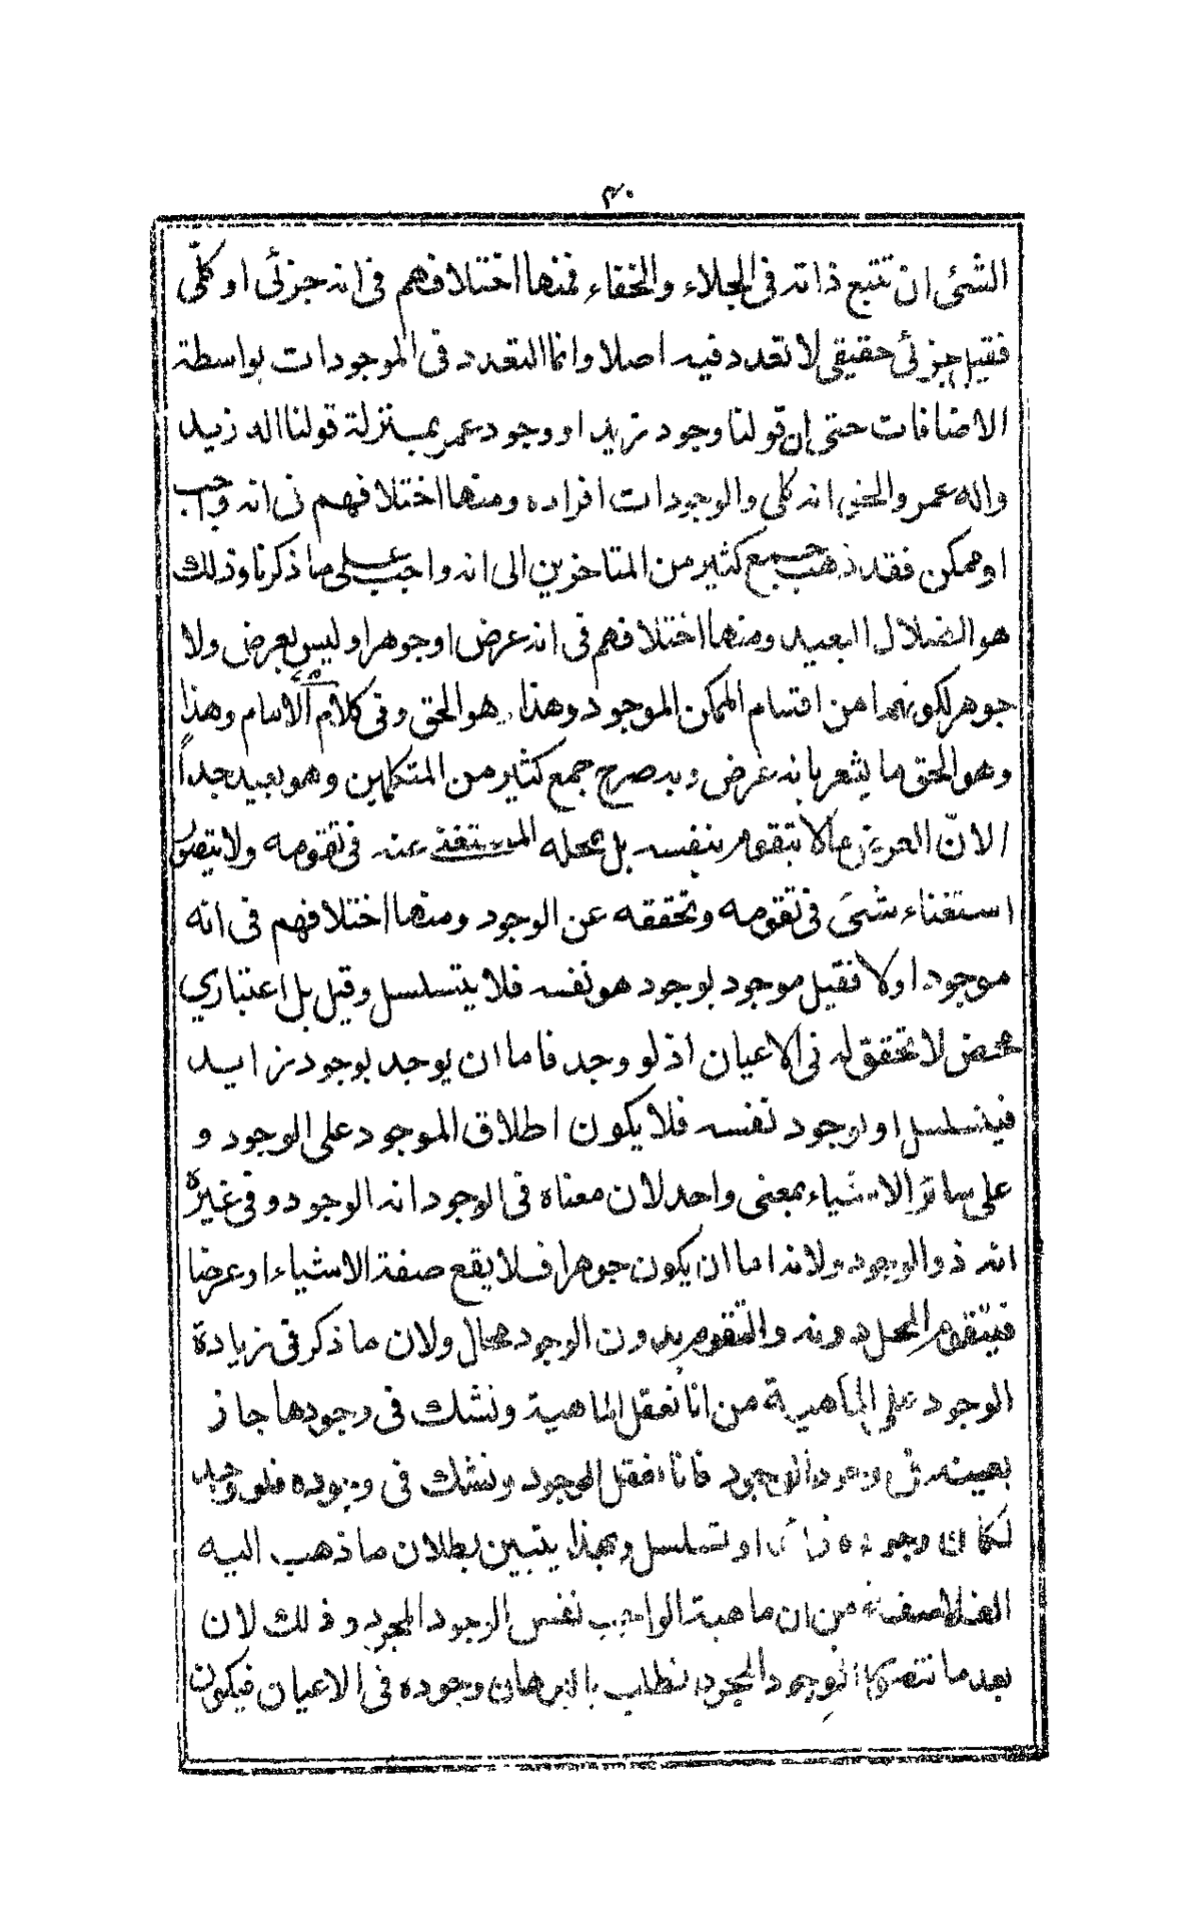 ٣٠
الشئ ان تتبع ذاته فى الجلاء والخفاء فمنها اختلافهم فى انه جزئى او كلّى
فقيل جزئى حقيقى لا تعدد فيه اصلا وانما التعدد فى الموجودات بواسطة
الاضافات حتى إن قولنا وجود زيد او وجود عمر بمنزلة قولنا اله زيد
واله عمر والحق انه كلى والوجودات افراده ومنها اختلافهم فى انه واجب
او ممكن فقد ذهب جمع كثير من المتاخرين الى انه واجب على ما ذكرنا وذلك
هو الضلال البعيد ومنها اختلافهم فى انه عرض او جوهر او ليس بعرض ولا
جوهر لكونهما من اقسام الممكن الموجود وهذا هو الحق وفى كلام الامام وهذا
وهو الحق ما يشعر بانه عرض وبه صرح جمع كثير من المتكلمين وهو بعيد جداً
لانّ العرض ما لا يتقوم بنفسه بل بمحله المستغنى عنه فى تقومه ولا يتصور
استغناء شئ فى تقومه وتحققه عن الوجود ومنها اختلافهم فى انه
موجود اولا فقيل موجود بوجود هو نفسه فلا يتسلسل وقيل بل اعتباري
محض لا تحقق له فى الاعيان اذ لو وجد فاما ان يوجد بوجود زايد
فيتسلسل او بوجود نفسه فلا يكون اطلاق الموجود على الوجود و
على سائر الاشياء بمعنى واحد لان معناه فى الوجود انه الوجود وفى غيره
انه ذو الوجود ولانه اما ان يكون جوهرا فلا يقع صفة الاشياء او عرضا
فيتقوم المحل دونه والتقوم بدون الوجود محال ولان ما ذكر فى زيادة
الوجود على الماهية من انا نعقل الماهية ونشك فى وجودها جاز
بعينه فى وجود الوجود فانا نعقل الوجود ونشك فى وجوده فلو وجد
لكان وجوده زائدا او تسلسل وبهذا يتبين بطلان ما ذهب اليه
الفلاسفة من ان ماهية الواجب نفس الوجود المجرد وذلك لان
بعد ما نتصور الوجود المجرد نطلب بالبرهان وجوده فى الاعيان فيكون